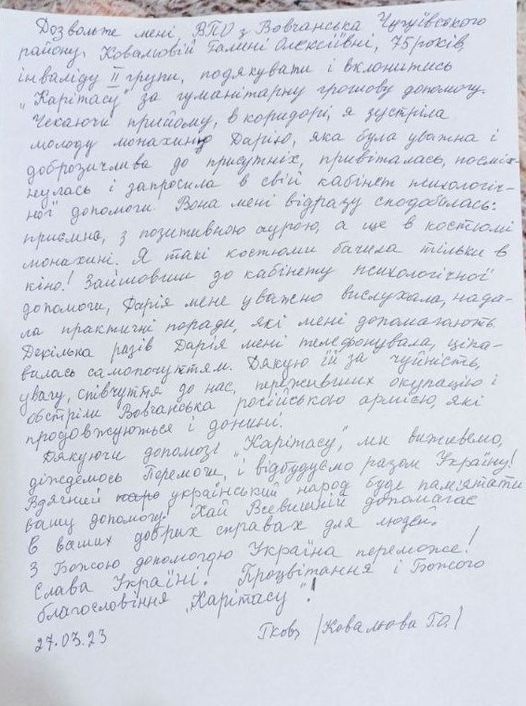 Дозвольте мені, ВПО з Вовчанська Чугуївського
району, Ковальовій Галині Олексіївні, 75 років,
інваліду II групи, подякувати і вклонитись
„Карітасу" за гуманітарну грошову допомогу.
Чекаючи прийому, в коридорі, я зустріла
молоду монахиню Дарію, яка була уважна і
доброзичлива до присутніх, привіталась, посміх-
нулась і запросила в свій кабінет психологіч-
ної допомоги. Вона мені відразу сподобалась:
приємна, з позитивною аурою, а ще в костюмі
монахині. Я такі костюми бачила тільки в
кіно! Зайшовши до кабінету психологічної
допомоги, Дарія мене уважно вислухала, нада-
ла практичні поради, які мені допомагають.
Декілька разів Дарія мені телефонувала, ціка-
вилась самопочуттям. Дякую їй за чуйність,
увагу, співчуття до нас, переживших окупацію і
обстріли Вовчанська російською армією, які
продовжуються і донині.
Дякуючи допомозі „Карітасу", ми виживемо,
діждемось Перемоги, і відбудуємо разом Україну!
Вдячний український народ буде пам'ятати
вашу допомогу! Хай Всевишній допомагає
в ваших добрих справах для людей.
З Божою допомогою Україна переможе!
Слава Україні! Процвітання і Божого
благословіння „Карітасу"!
27.03.23 /Ковальова Г.О./